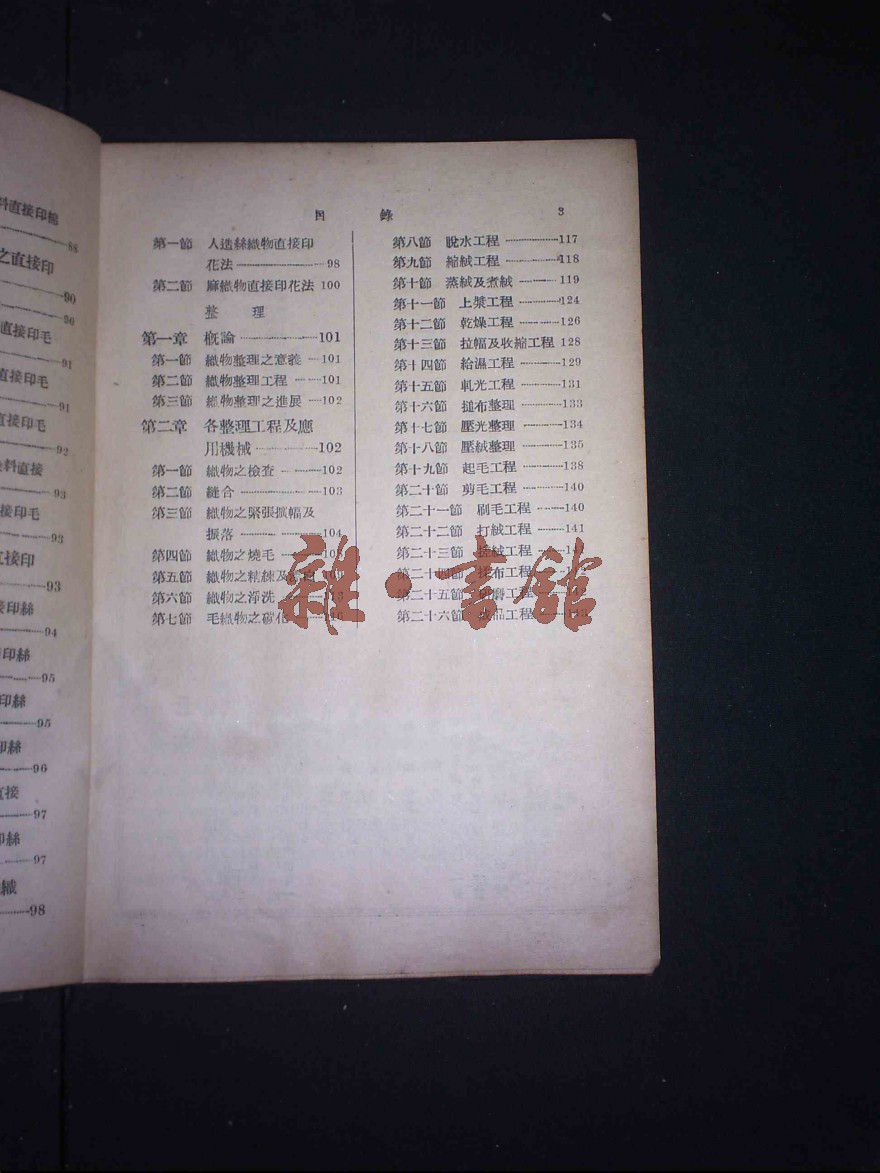 料直接印棉
88
之直接印
90
90
直接印毛
91
直接印毛
91
直接印毛
92
料直接
93
接印毛
93
直接印
93
接印絲
94
印絲
95
印絲
95
印絲
96
直接
97
印絲
97
織
98
目 錄 3
第一節 人造絲織物直接印
花法 98
第二節 麻織物直接印花法 100
整 理
第一章 概論 101
第一節 織物整理之意義 101
第二節 織物整理工程 101
第三節 織物整理之進展 102
第二章 各整理工程及應
用機械 102
第一節 織物之檢查 102
第二節 縫合 103
第三節 織物之緊張擴幅及
振落 104
第四節 織物之燒毛
第五節 織物之精練及
第六節 織物之淨洗
第七節 毛織物之碳化
第八節 脫水工程 117
第九節 縮絨工程 118
第十節 蒸絨及煮絨 119
第十一節 上漿工程 124
第十二節 乾燥工程 126
第十三節 拉幅及收縮工程 128
第十四節 給濕工程 129
第十五節 軋光工程 131
第十六節 搥布整理 133
第十七節 壓光整理 134
第十八節 壓絨整理 135
第十九節 起毛工程 138
第二十節 剪毛工程 140
第二十一節 刷毛工程 140
第二十二節 打絨工程 141
第二十三節 絨工程
第二十四節 布工程
第二十五節 工程
第二十六節 工程
雜·書館